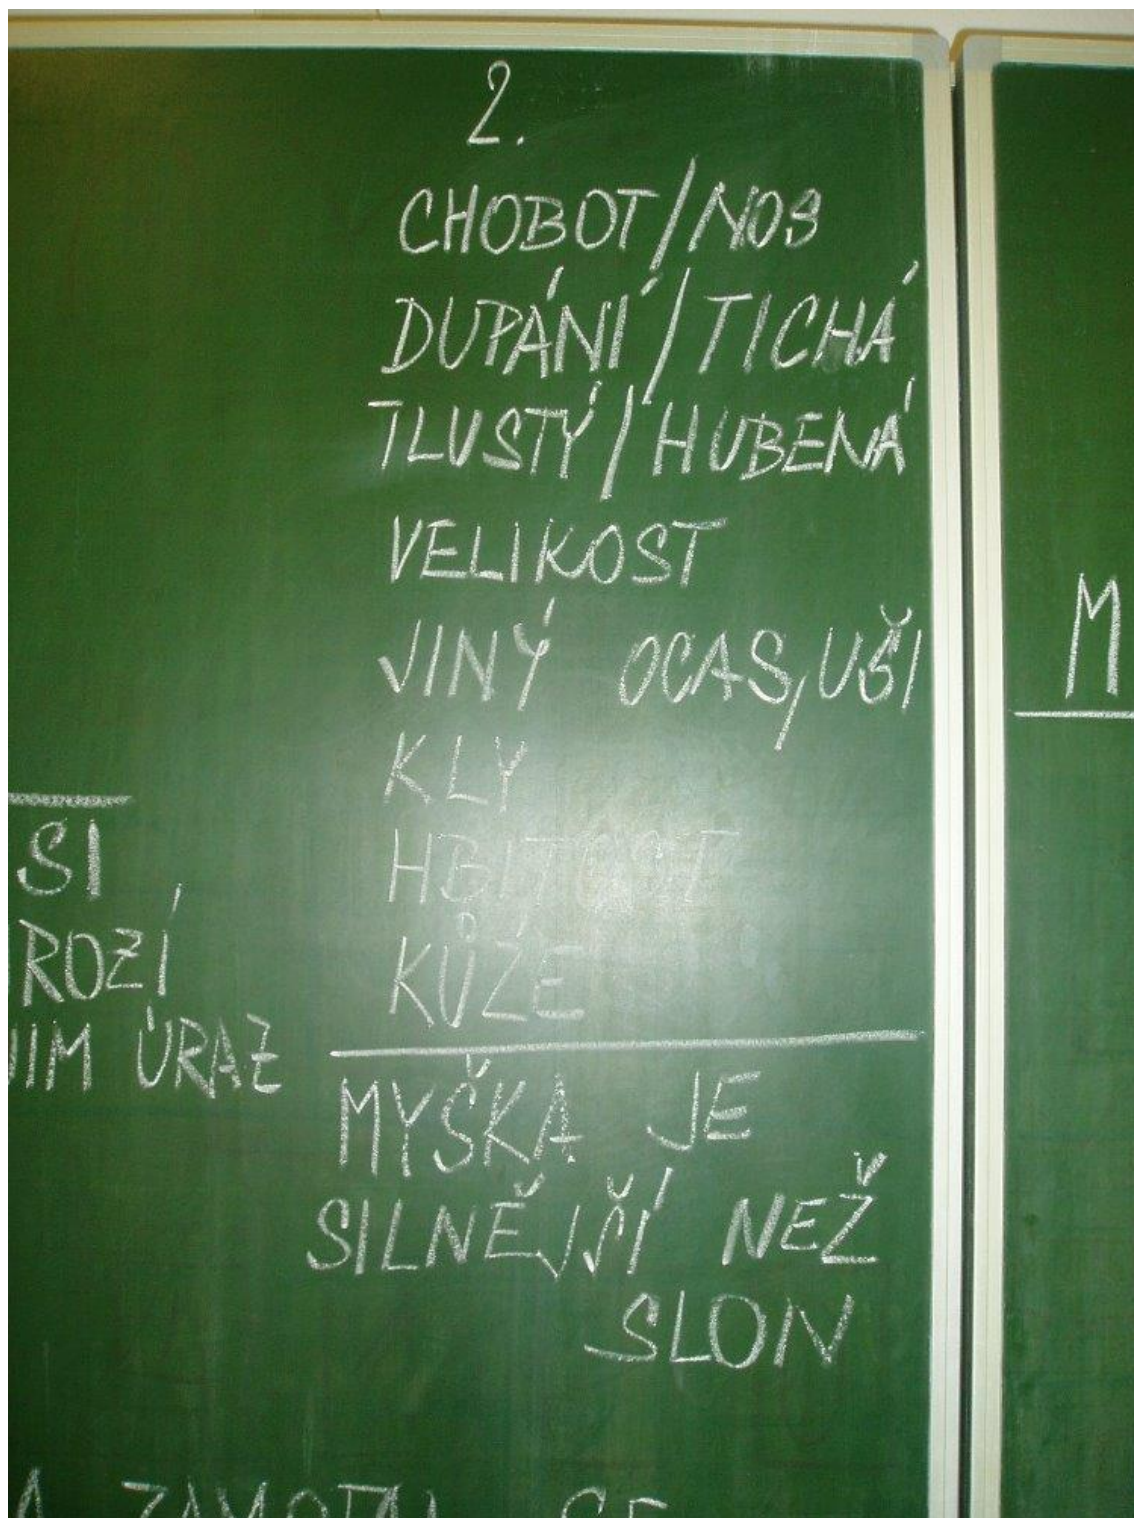 2.
CHOBOT/NOS
DUPÁNÍ/TICHÁ
TLUSTÝ/HUBENÁ
VELIKOST
JINÝ OCAS, UŠI
KLY
HBITOST
KŮŽE
MYŠKA JE
SILNĚJŠÍ NEŽ
SLON
SI
ROZÍ
ÚRAZ
ZAMOTAL SE
M